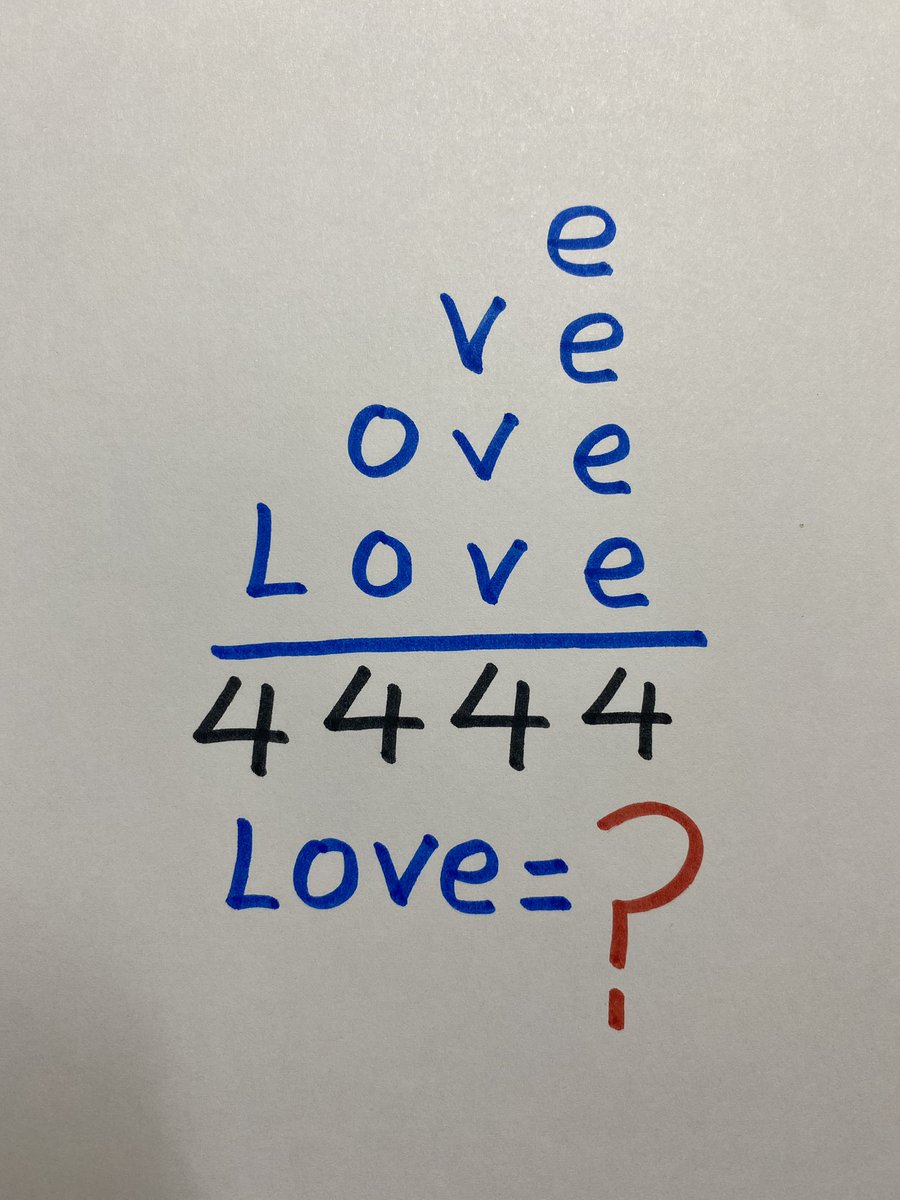 e
v e
o v e
L o v e
4 4 4 4
Love=?